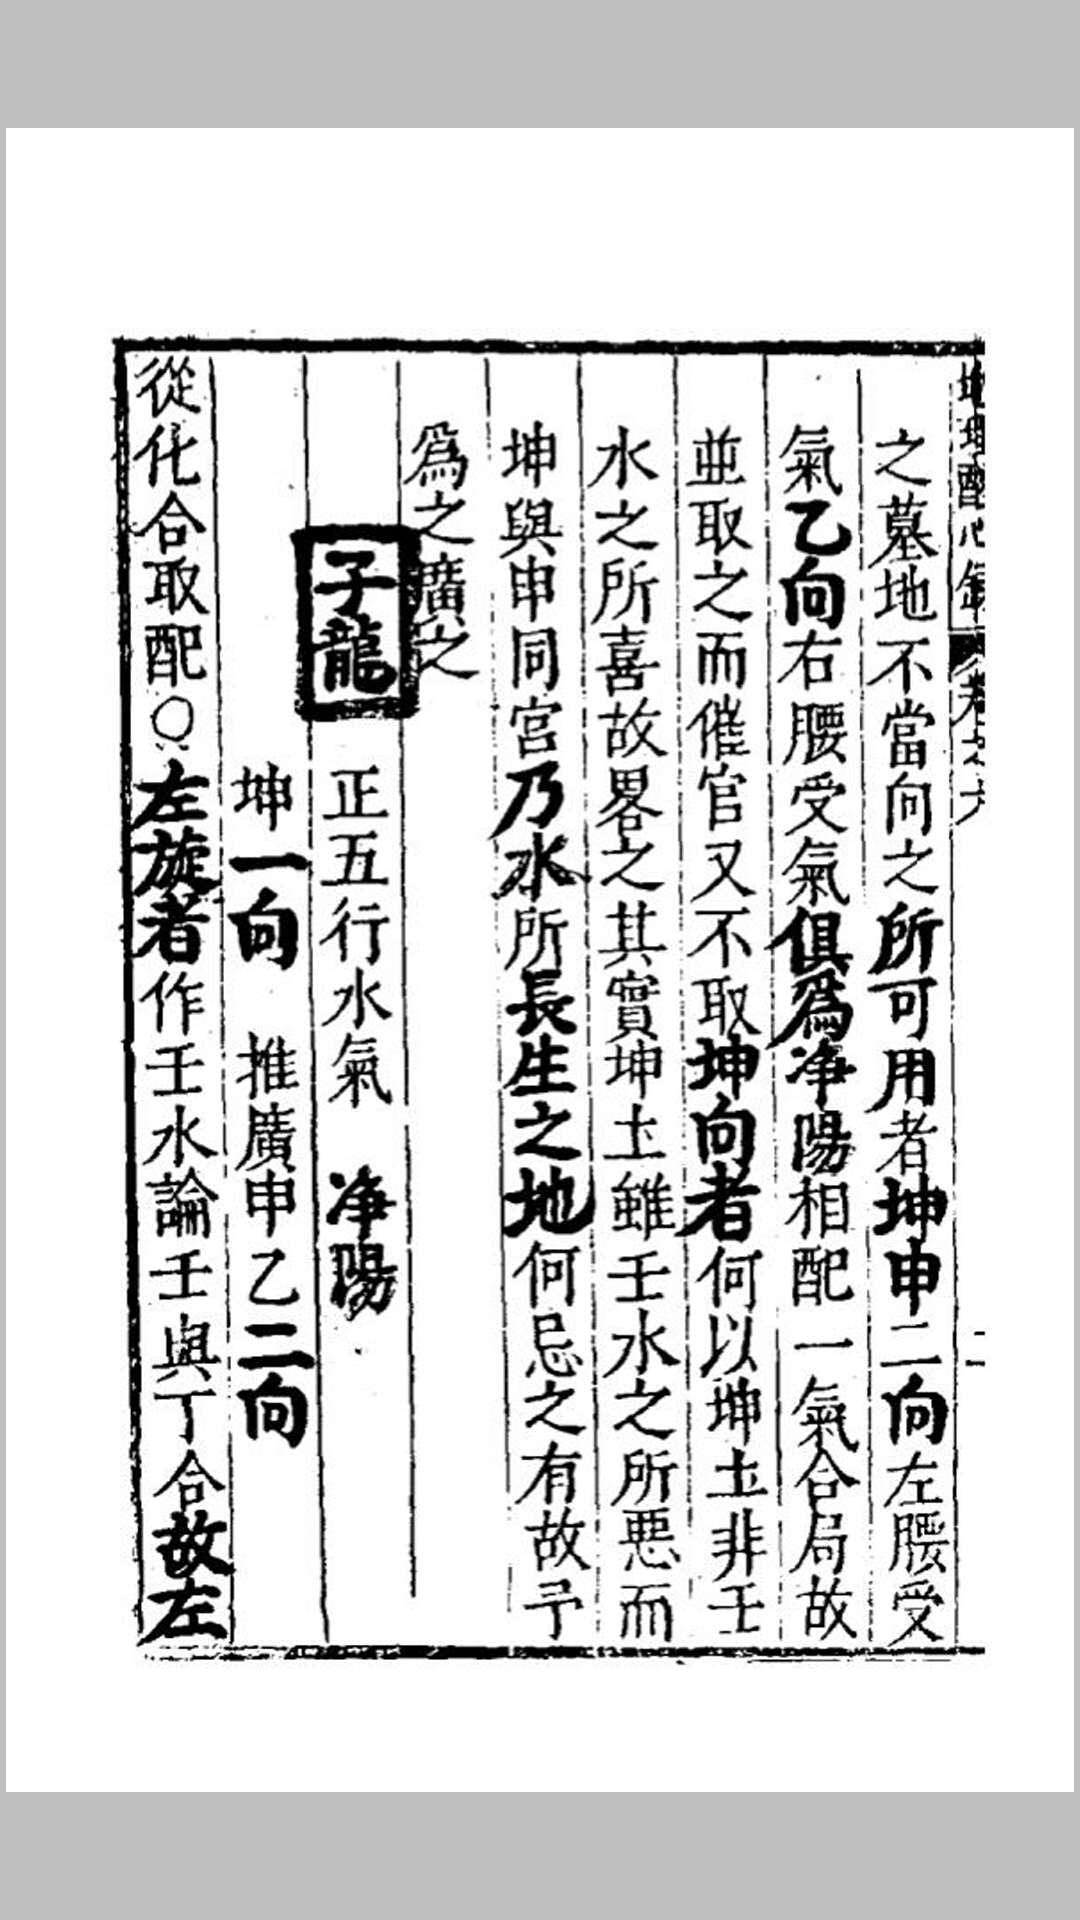 之墓地不當向之所可用者坤申二向左腰受
氣乙向右腰受氣俱爲净陽相配一氣合局故
並取之而催官又不取坤向者何以坤土非壬
水之所喜故畧之其實坤土雖壬水之所惡而
坤與申同宮乃水所長生之地何忌之有故予
爲之廣之
子龍 正五行水氣 净陽
坤一向 推廣申乙二向
從化合取配○左旋者作壬水論壬與丁合故左